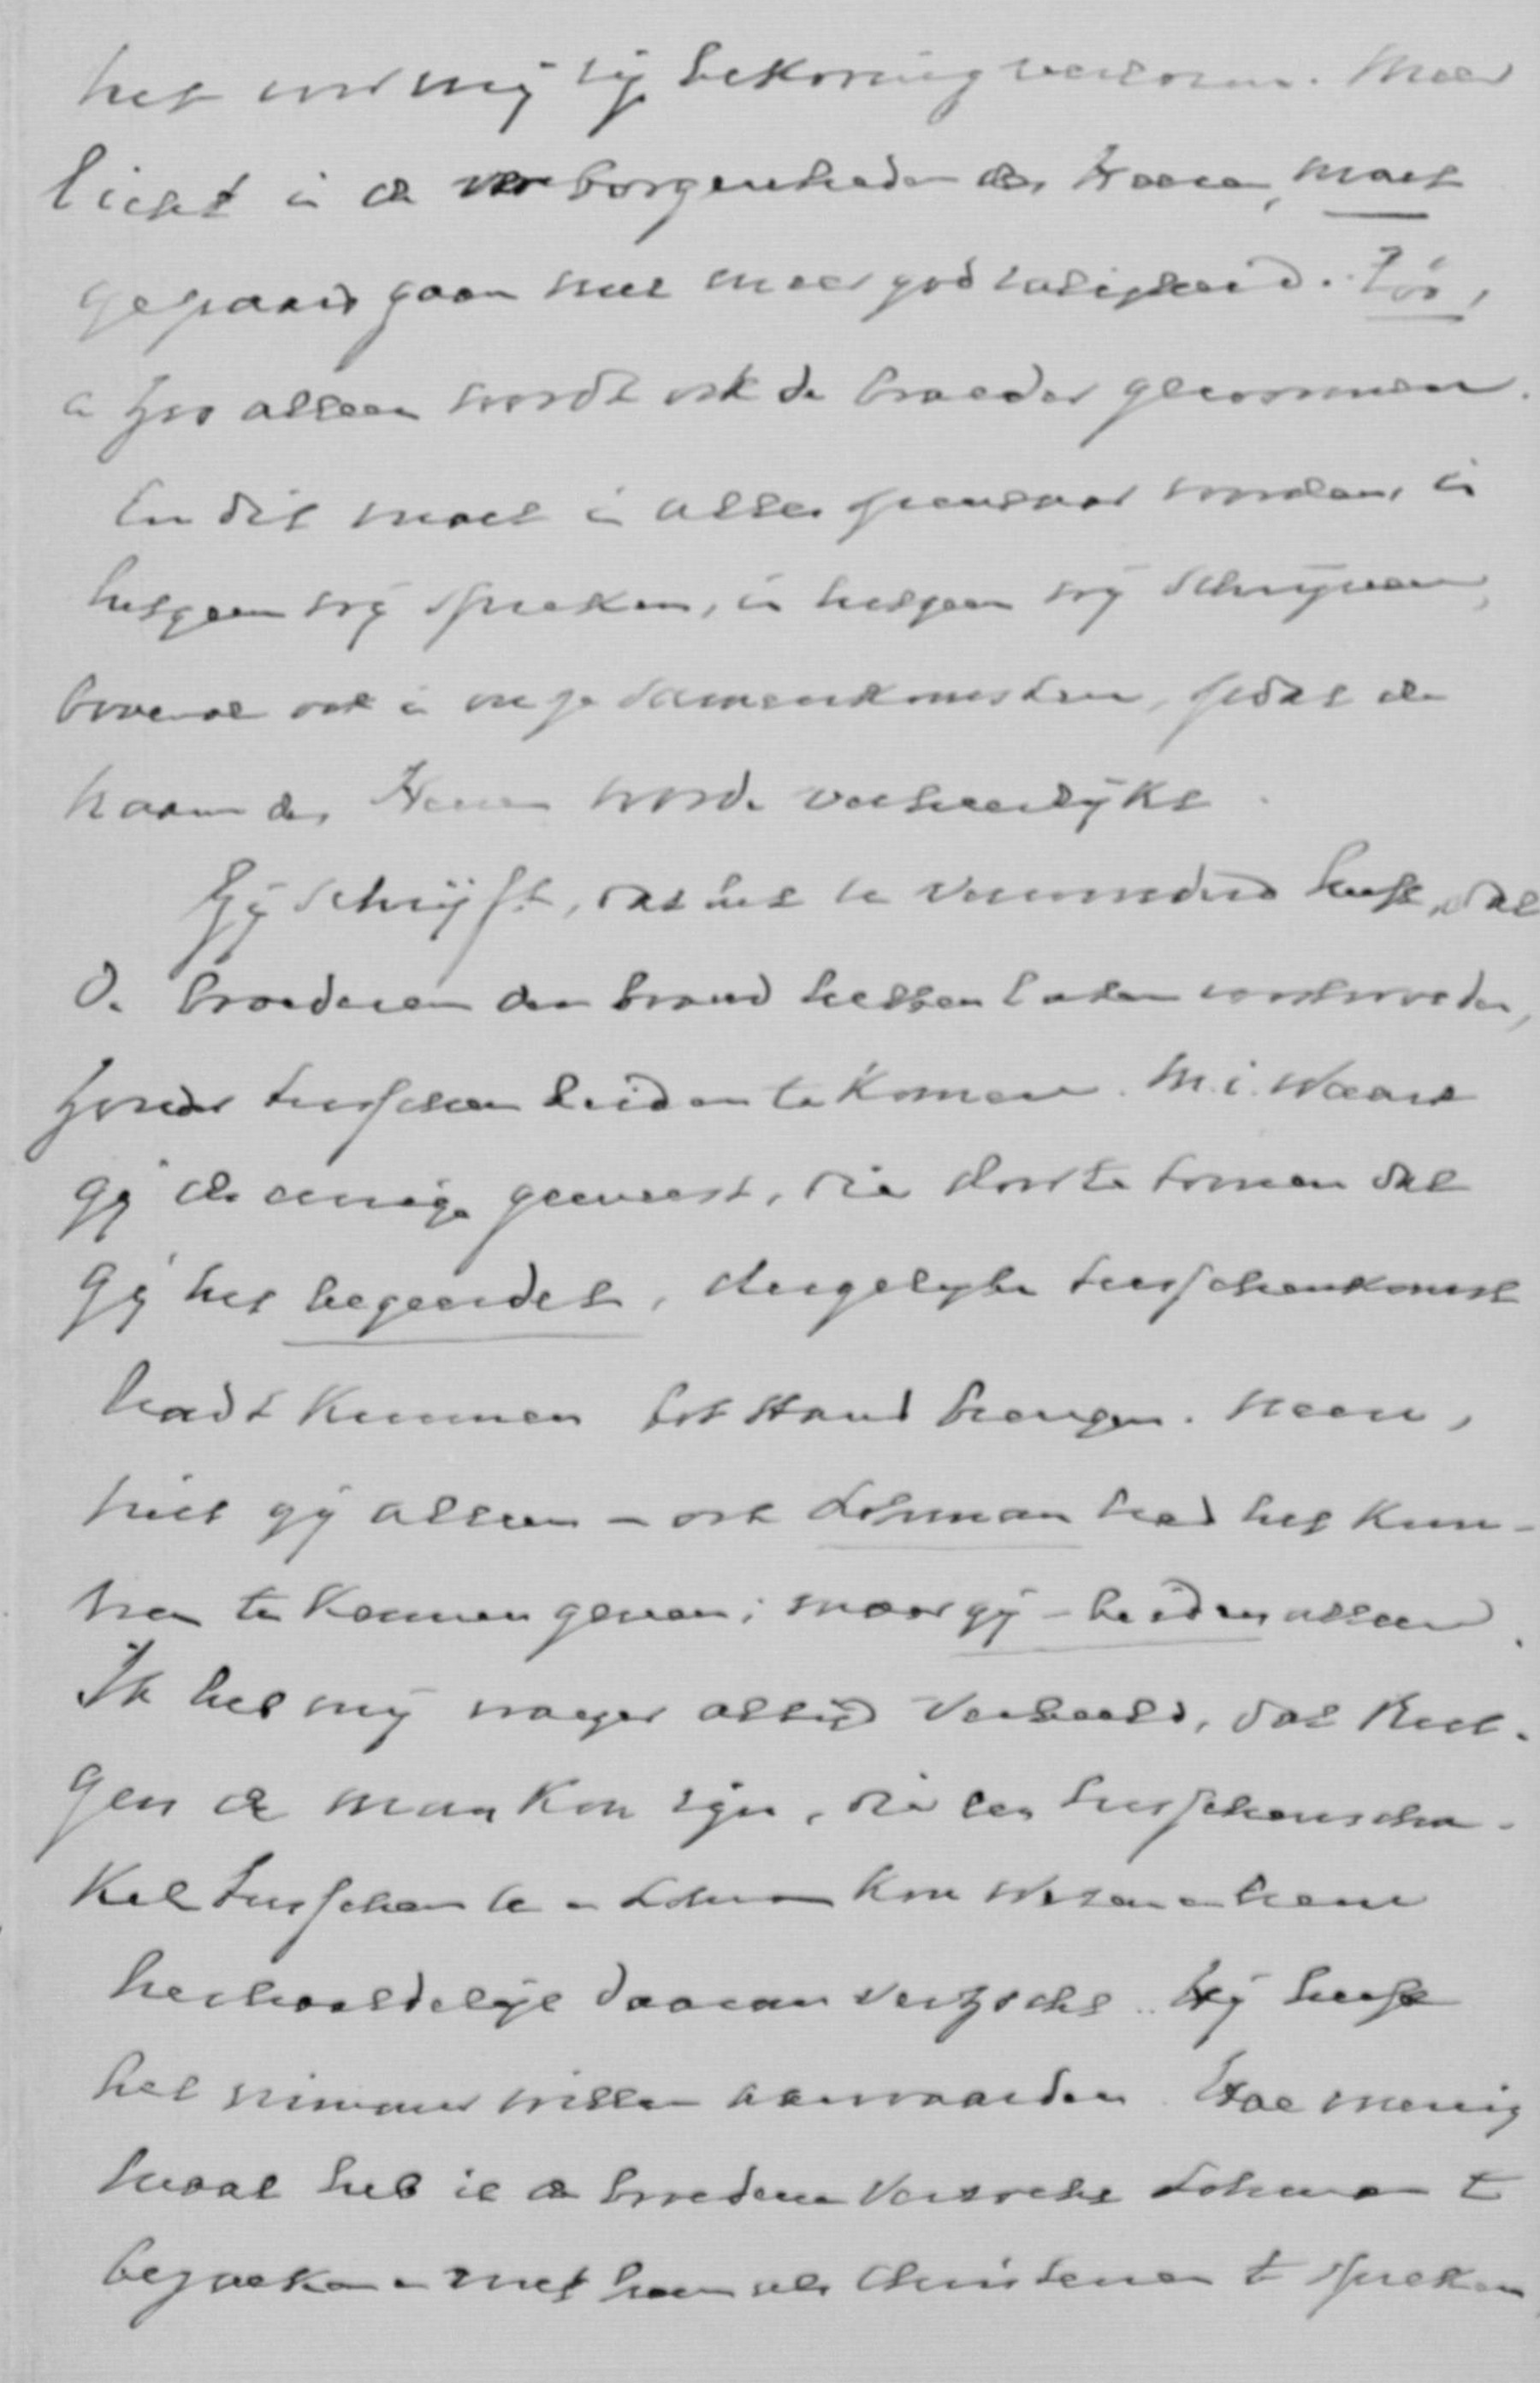 het voor mij zij bekoring verloren. Meer
licht in de verborgenheden des Heeren, moet
gepaard gaan met meer godzaligheid. Zóó,
en zoo alleen wordt ook de broeder gewonnen.
En dit moet in alles openbaar worden, in
hetgeen wij spreken, in hetgeen wij schrijven,
bovenal ook in onze samenkomsten, opdat de
naam des Heeren worde verheerlijkt.
Gij schrijft, dat het U verwonderd heeft, dat
de broederen den brand hebben laten voortwoeden,
zonder tusschen beiden te komen. M.i. waart
gij de eenige geweest, die door te toonen dat
gij het begeerdet, dergelijke tusschenkomst
hadt kunnen tot stand brengen. Neen,
niet gij alleen – ook Lohman had het kun-
nen te kennen geven; maar gij – beiden alleen.
Ik heb mij vroeger altijd verbeeld, dat
gen de man kon zijn, die een tusschenscha-
kel tusschen U en Lohman kon wezen en hem
herhaaldelijk daarom verzocht. Hij heeft
het nimmer willen aanvaarden. Hoe menig
maal heb ik de broederen verzocht Lohman te
bezoeken en met hem als Christenen te spreken